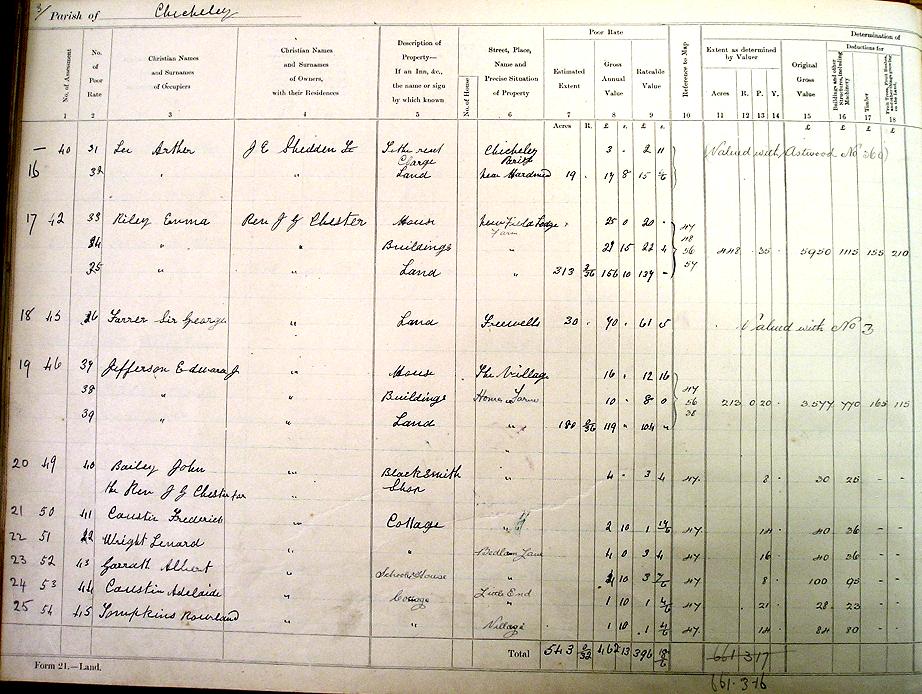 3/ Parish of Chicheley
Determination of
Poor Rate
No. of Assessment
No. of Poor Rate
Christian Names and Surnames of Occupiers
Christian Names and Surnames of Owners, with their Residences
Description of Property— If an Inn, &c., the name or sign by which known
No. of House
Street, Place, Name and Precise Situation of Property
Estimated Extent
Gross Annual Value
Rateable Value
Reference to Map
Extent as determined by Valuer
Original Gross Value
Deductions for
Buildings and other Structures, including Machinery
Timber
Acres R. P. Y.
1 2 3 4 5 6 7 8 9 10 11 12 13 14 15 16 17 18
Acres R. £ s. £ s. £ £ £ £
— 40 31 Lee Arther J E Shedden Tithe rent Charge Chicheley Parish 3 - 2 11 (Valued with Astwood No 360)
16 32 " " Land near 19 . 17 8 15
17 42 33 Riley Emma Rev J G Chester House Newfield Lodge Farm 25 0 20 - 47
34 " " Buildings " 15 22 4 48 56 448 . 35 . 5950 1115 155 210
35 " " Land " 313 156 10 137 - 57
18 45 36 Farrer Sir George " Land Freewells 30 . 70 . 61 5 Valued with No 3
19 46 37 Jefferson Edward J " House The Village 16 . 12 16 47
38 " " Buildings Home Farm 10 . 8 0 56 213 0 20 . 3577 770 165 115
39 " " Land " 180 119 " 104 " 38
20 49 40 Bailey John " BlackSmith Shop " 4 - 3 4 47. 2 . 30 25 - -
the Rev J G Chester for
21 50 41 Caustin Frederick " Cottage " 2 10 1 47. 14 . 40 36 - -
22 51 42 Wright Lenard " " Bedlam Lane 4 0 3 4 47 16 . 40 36 - -
23 52 43 Garrath Albert " School House " 10 3 47 8 . 100 95 - -
24 53 44 Caustin Adelaide " Cottage Little End 1 10 1 47 21 . 28 23 - -
25 54 45 Tompkins Rowland " " Village 1 10 1 47. 14 . 84 80 - -
Total 543 462 13 396 661 317
Form 21.—Land.
661.3.16